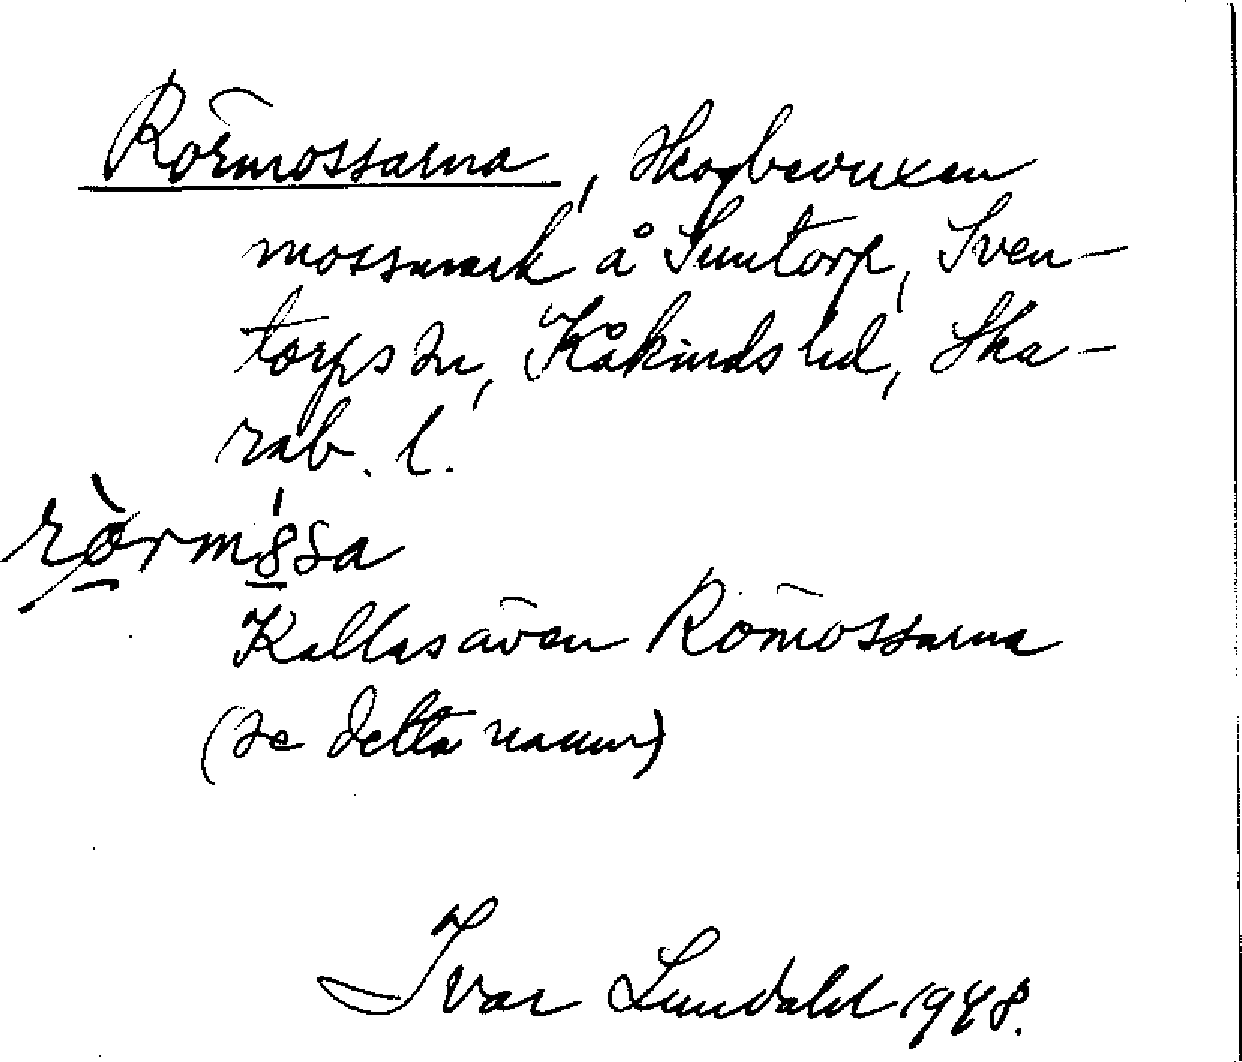 Rörmossarna, Skogbevuxen
mossmark å Suntorp, Sven-
torps sn, Kåkinds hd, Ska-
rab. l.
rörmssa
Kallas även Römossarna
(se detta namn)
Ivar Lundahl 1948.